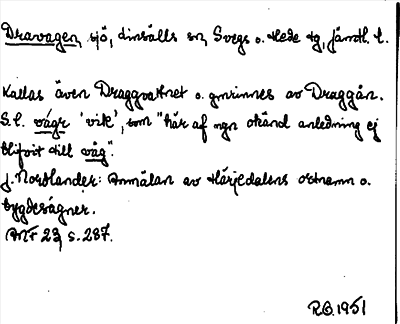 Dravagen, sjö, Linsälls sn, Svegs o. Hede tg, Jämtl. l.
Kallas även Draggvattnet o. gmrinnes av Draggån.
S.l. vágr 'vik', som "här af ngn okänd anledning ej
blifvit till våg".
J. Nordlander: Anmälan av Härjedalens ortnamn o.
bygdesägner.
ANF 23, s. 287.
R.O. 1951